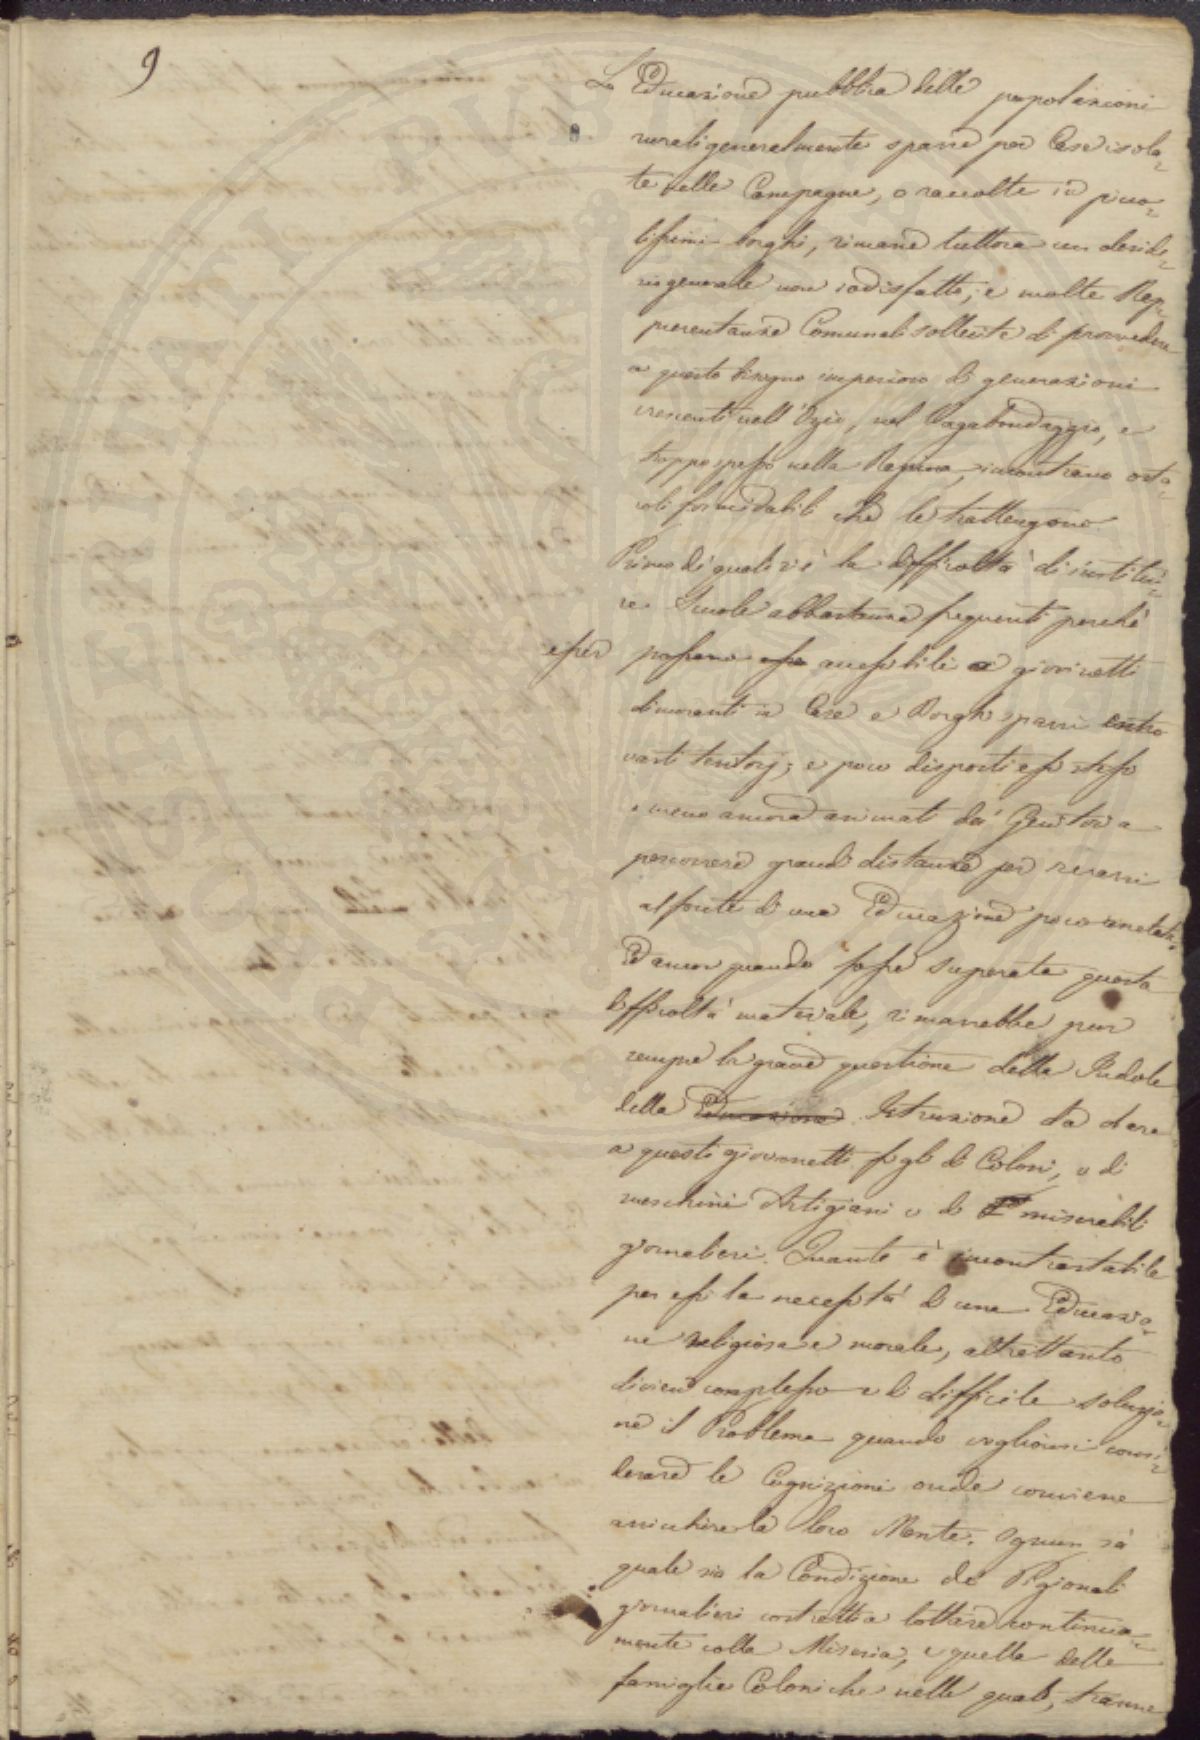 9
La Educazione pubblica delle popolazioni
rurali generalmente sparse per Case isola=
te nelle Campagne, o raccolte in picco=
lissimi borghi, rimane tuttora un deside=
rio generale non sodisfatto; e molte Rap=
presentanze Comunali sollecite di provvedere
a questo bisogno imperioso di generazioni
crescenti nell'Ozio, nel Vagabondaggio, e
troppo spesso nella Rapina, incontrano osta=
coli formidabili che le trattengono.
Primo di quali si è la difficoltà di instituì=
re Scuole abbastanza frequenti perchè
esser possano esse accessibili a giovinetti
dimoranti in Case e Borghi sparsi entro
vasti territorj; e poco disposti essi stessi
e meno ancora animati da' Genitori a
percorrere grandi distanze per recarsi
al fonte di una Educazione poco
Ed ancor quando fosse superata questa
difficoltà materiale, rimarrebbe pur
sempre la grave questione della Indole
della Educazione Istruzione da dare
a questi giovanetti figli di Coloni, o di
meschini Artigiani o di miserabili
giornalieri. Quanto è incontrastabile
per essi la necessità di una Educazio=
ne religiosa e morale, altrettanto
divien complesso e di difficile soluzio=
ne il Problema quando vogliansi consi=
derare le Cognizioni onde conviene
arricchire la loro Mente. Ognun sà
quale sia la Condizione de Pigionali
giornalieri costretti a lottare continua=
mente colla Miseria, e quella delle
famiglie Coloniche nelle quali, tranne